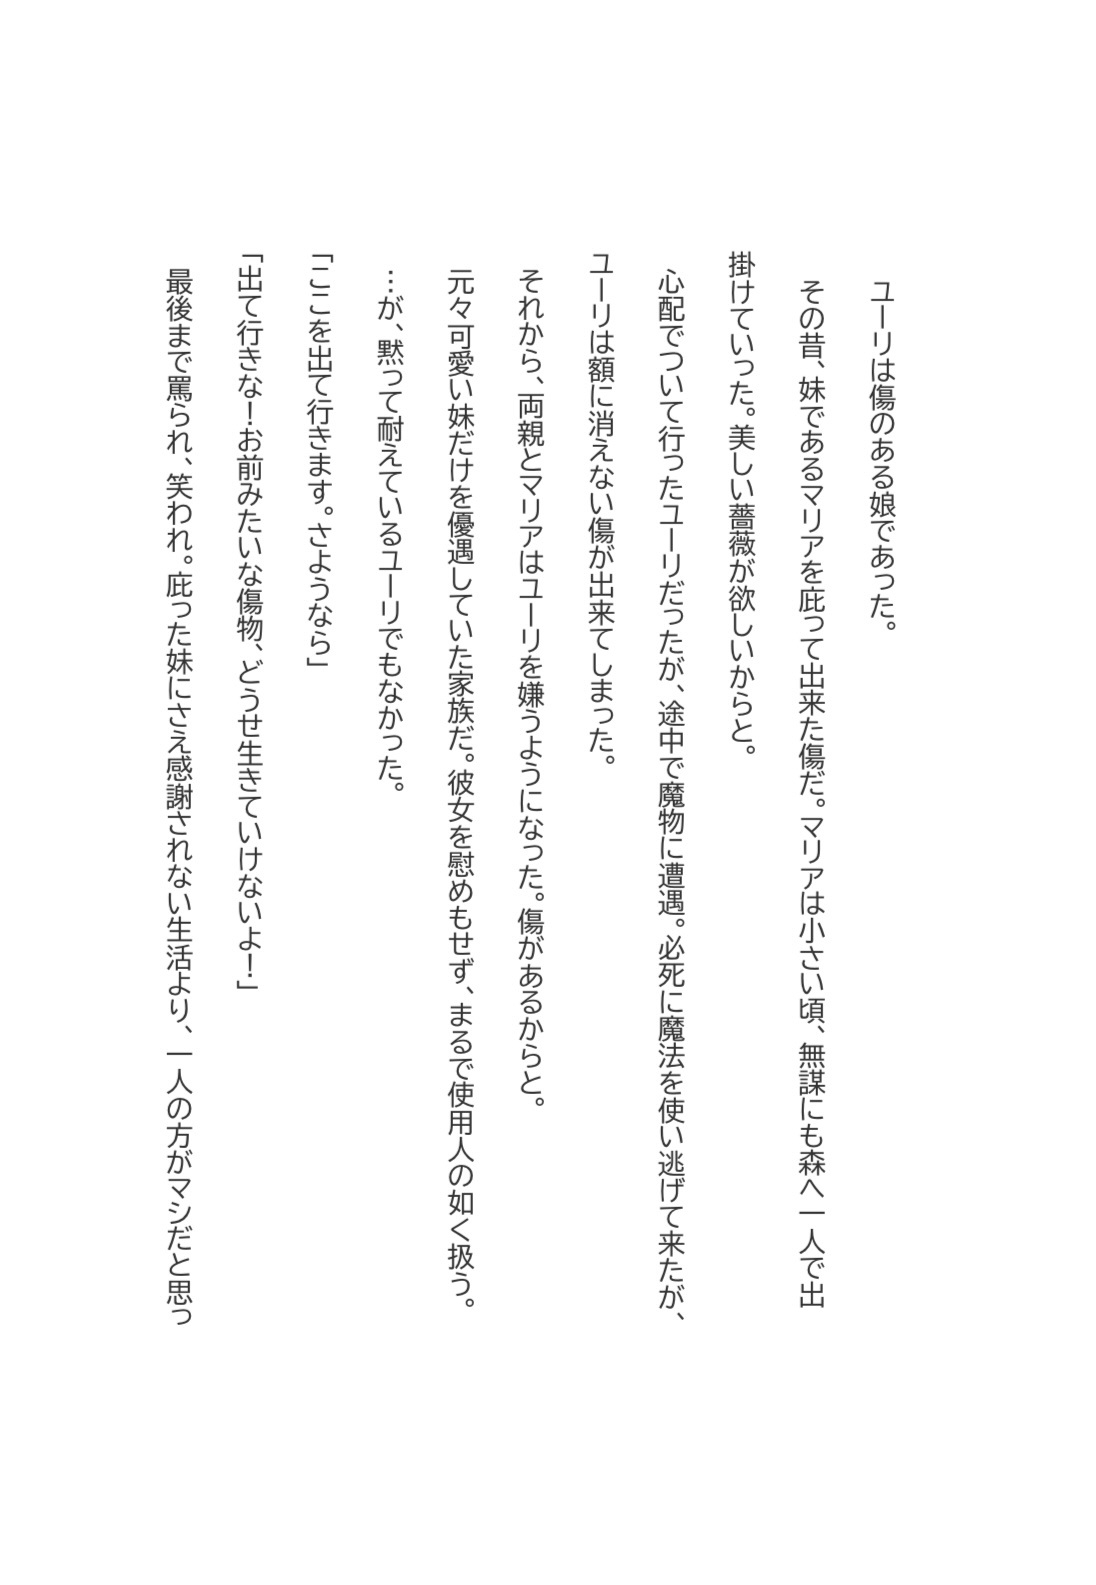 ユーリは傷のある娘であった。
その昔、妹であるマリアを庇って出来た傷だ。マリアは小さい頃、無謀にも森へ一人で出
掛けていった。美しい薔薇が欲しいからと。
心配でついて行ったユーリだったが、途中で魔物に遭遇。必死に魔法を使い逃げて来たが、
ユーリは額に消えない傷が出来てしまった。
それから、両親とマリアはユーリを嫌うようになった。傷があるからと。
元々可愛い妹だけを優遇していた家族だ。彼女を慰めもせず、まるで使用人の如く扱う。
…が、黙って耐えているユーリでもなかった。
「ここを出て行きます。さようなら」
「出て行きな！お前みたいな傷物、どうせ生きていけないよ！」
最後まで罵られ、笑われ。庇った妹にさえ感謝されない生活より、一人の方がマシだと思っ